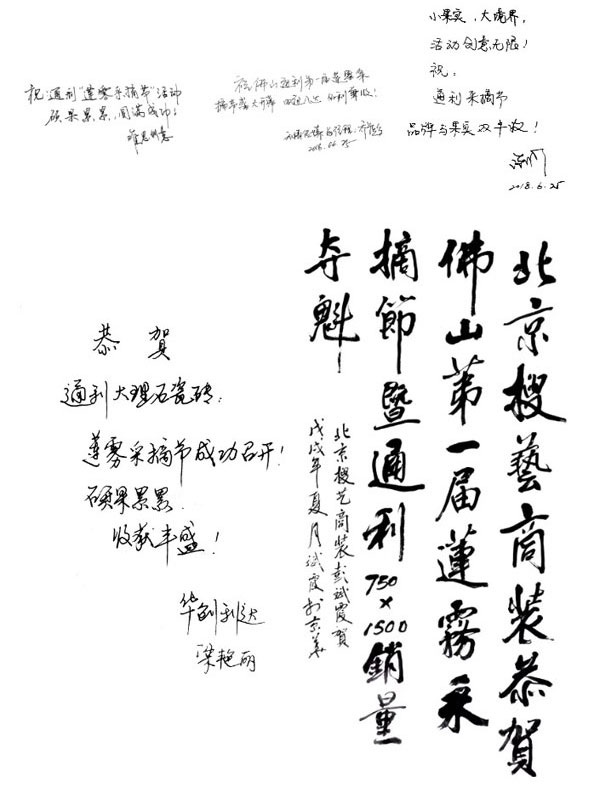 祝通利"莲雾采摘节"活动
硕果累累,圆满成功!
祝佛山通利第一届莲雾采
摘节盛大开幕
2018.06.25
小果实,大境界,
活动创意无限!
祝:
通利采摘节
品牌与果实双丰收!
2018.6.25
恭贺
通利大理石瓷砖:
莲雾采摘节成功召开!
硕果累累
收获丰盛!
华创利达
梁艳丽
北京搜藝商装恭賀
佛山第一届蓮霧采
摘節暨通利750×1500銷量
夺魁
北京搜艺商装彭斌霞賀
戊戌年夏月斌霞於京華